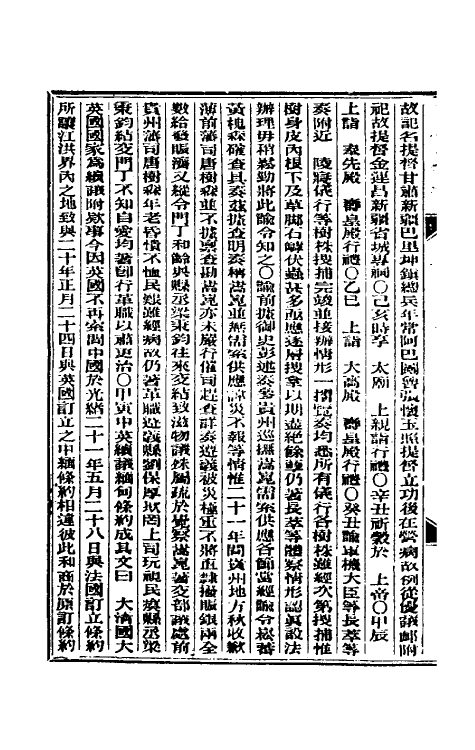 故記名提督甘肅新疆巴里坤鎮總兵年常阿巴圖魯張懷玉照提督立功後在營病故例從優議卹附
祀故提督金運昌新疆省城專祠〇己亥時享　太廟　上親詣行禮〇辛丑祈穀於　上帝〇甲辰
上詣　奉先殿　壽皇殿行禮〇乙巳　上詣　大高殿　壽皇殿行禮〇癸丑諭軍機大臣等長萃等
奏附近　陵寢儀行等樹株搜捕完竣並接辦情形一摺覽奏均悉所有儀行各樹株雖經次第搜捕惟
樹身皮內根下及草腳石罅伏蟲甚多亟應逐層搜拿以期盡絕餘孽仍著長萃等體察情形認真設法
辦理毋稍鬆勁將此諭令知之〇諭前據御史彭述奏參貴州巡撫嵩崑需索供應各節當經諭令崧蕃
黃槐森確查具奏茲據查明奏稱嵩崑並無需索供應諱災不報等情惟二十一年間貴州地方秋收歉
薄前藩司唐樹森並不據稟查勘嵩崑亦未嚴行催司赶查詳奏遵義被災極重不將直隸撥賑銀兩全
數給發賑濟又縱令門丁和餘與縣丞梁東鈞往來交結致滋物議殊屬疏於覺察嵩崑著交部議處前
貴州藩司唐樹森年老昏憒不恤民艱雖經病故仍著革職遵義縣劉保厚欺罔上司玩視民瘼縣丞梁
東鈞結交門丁不知自愛均著卽行革職以肅吏治〇甲寅中英續議緬甸條約成其文曰　大清國大
英國國家為續議附款事今因英國不再索問中國於光緒二十一年五月二十八日與法國訂立條約
所讓江洪界內之地致與二十年正月二十四日與英國訂立之中緬條約相違彼此和商於原訂條約